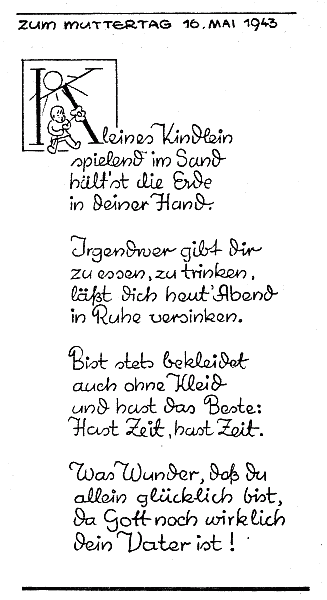 ZUM MUTTERTAG 16. MAI 1943
Kleines Kindlein
spielend im Sand
hält'st die Erde
in deiner Hand.
Irgendwer gibt dir
zu essen, zu trinken,
läßt dich heut' Abend
in Ruhe versinken.
Bist stets bekleidet
auch ohne Kleid
und hast das Beste:
Hast Zeit, hast Zeit.
Was Wunder, daß du
allein glücklich bist,
da Gott noch wirklich
dein Vater ist!